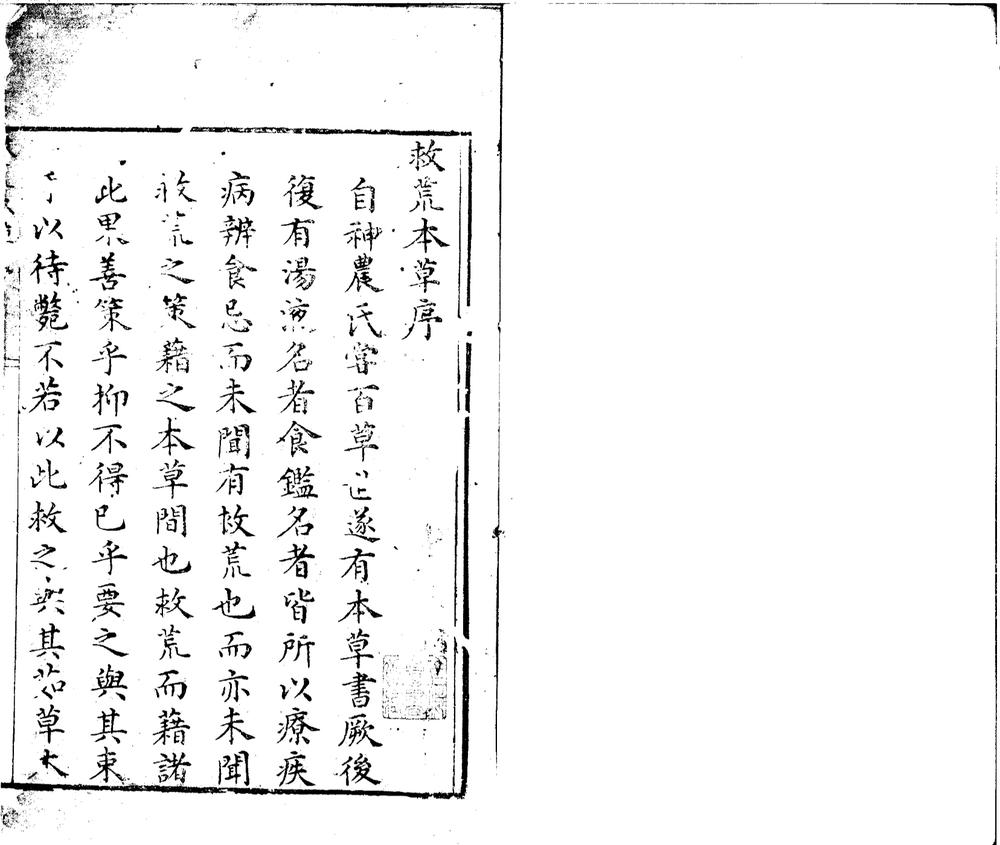 救荒本草序
自神農氏嘗百草遂有本草書厥後
復有湯液名者食鑑名者皆所以療疾
病辨食忌而未聞有救荒也而亦未聞
救荒之策藉之本草間也救荒而藉諸
此果善策乎抑不得已乎要之與其束
手以待斃不若以此救之與其茹草木